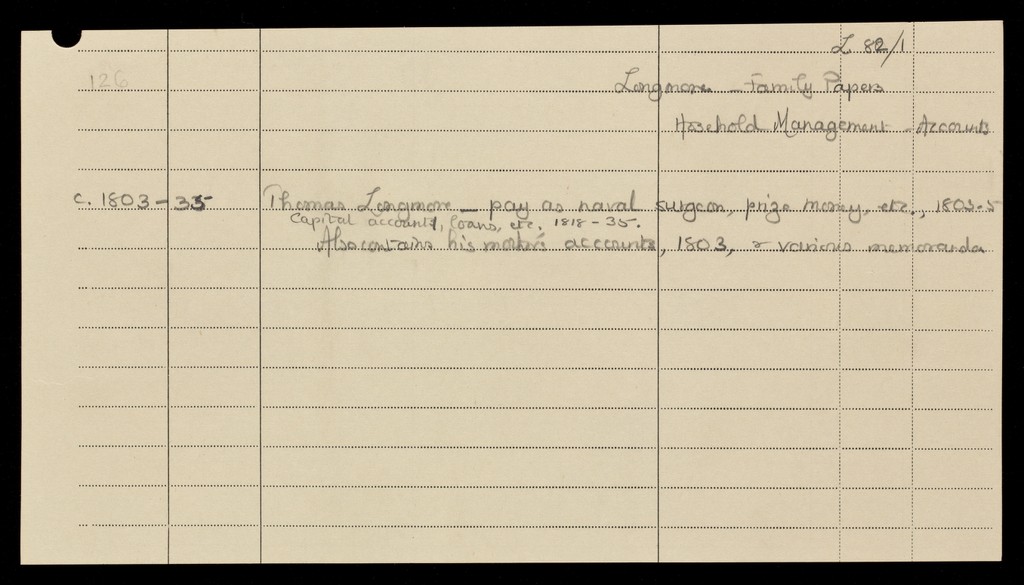 L 82/1
126
Longmore – Family Papers
Hosehold Management – Accounts
c. 1803 – 35 Thomas Longmore – pay as naval surgeon, prize money, etc., 1803-5
Capital accounts, loans, etc. 1818 – 35.
Also contains his mother's accounts, 1803, & various memoranda